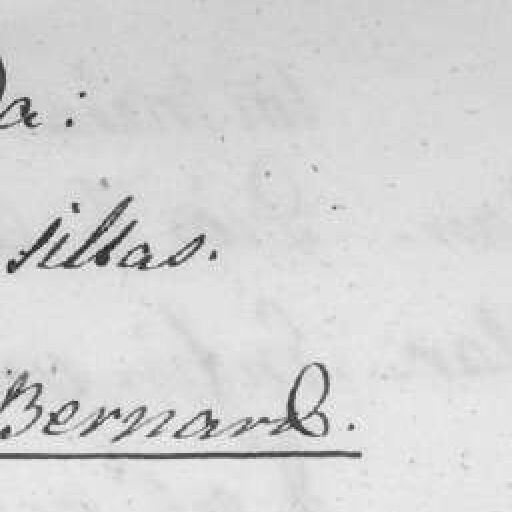 a:
sillas.
Bernard.